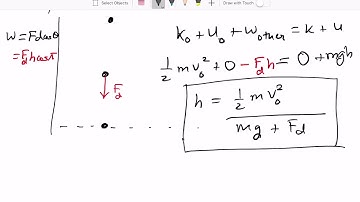 Select Objects
Draw with Touch
W = Fd cosθ
= F_d h cosπ
F_d
K_0 + U_0 + W_other = K + U
1/2 m v_0^2 + 0 - F_d h = 0 + mgh
h = 1/2 m v_0^2 / mg + F_d